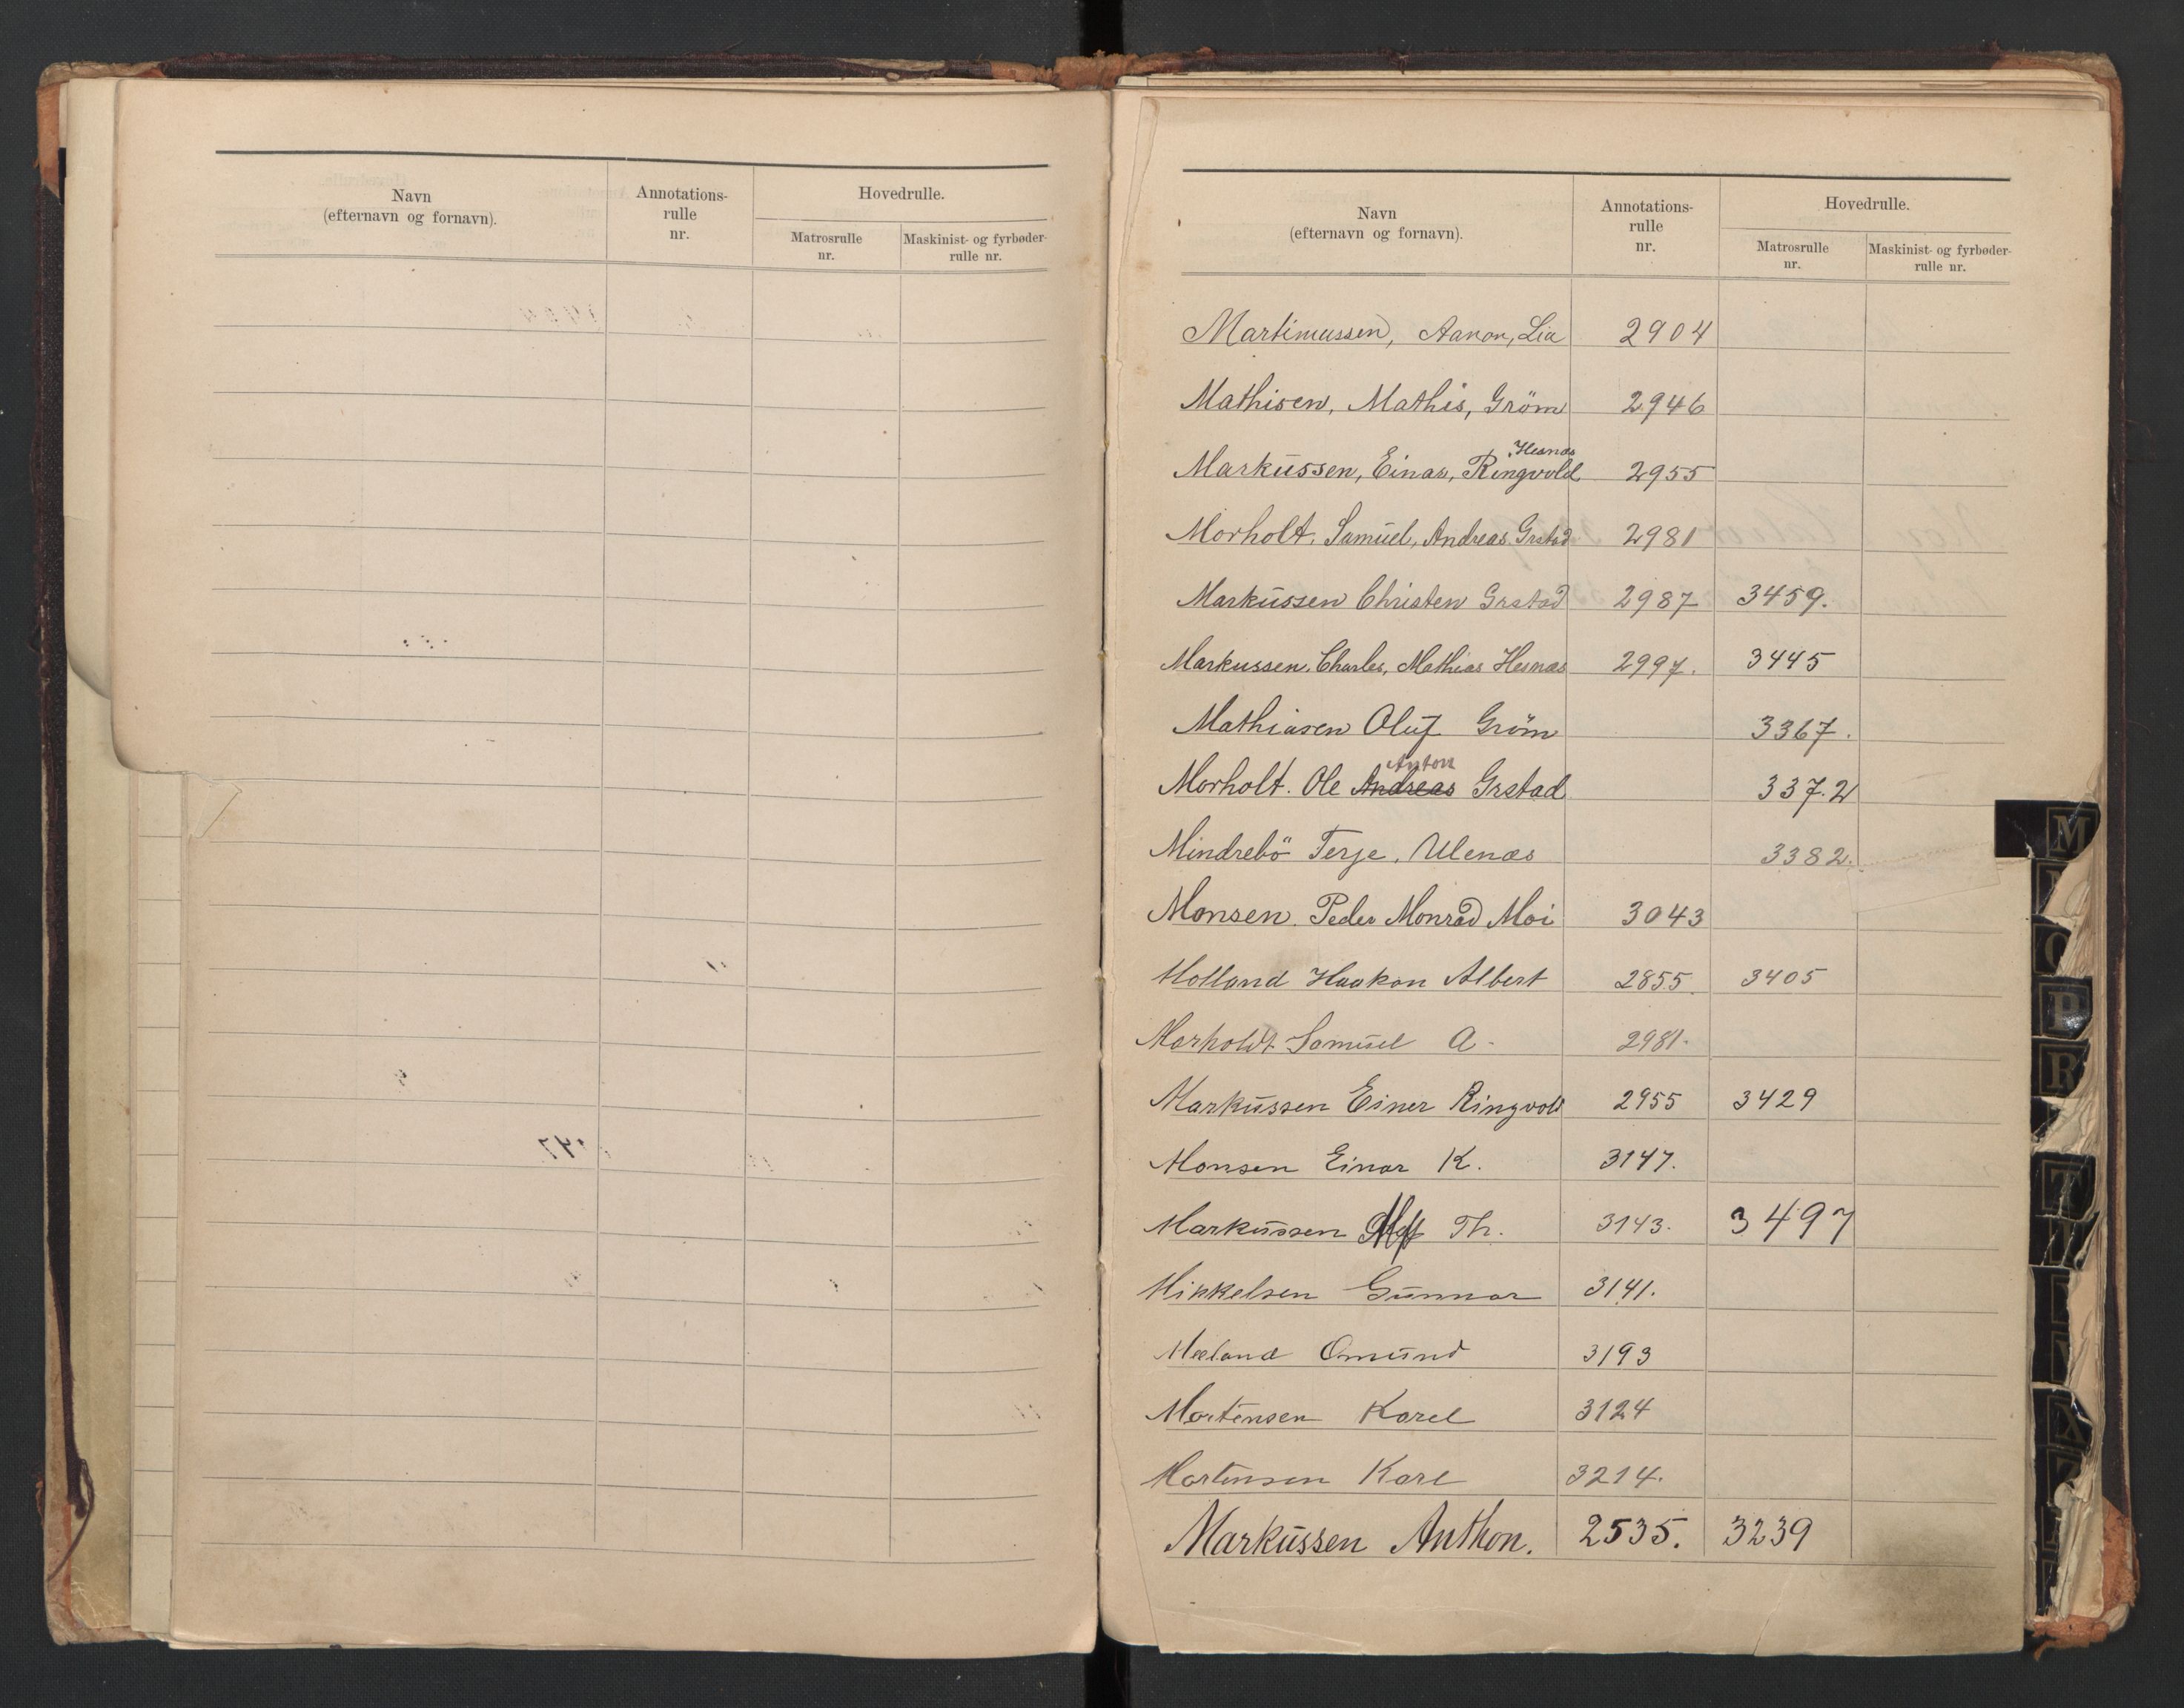 Navn
(efternavn og fornavn).
Annotations-
rulle
nr.
Hovedrulle.
Matrosrulle
nr.
Maskinist- og fyrbøder-
rulle nr.
Navn
(efternavn og fornavn).
Annotations-
rulle
nr.
Hovedrulle.
Matrosrulle
nr.
Maskinist- og fyrbøder-
rulle nr.
Martinussen, Aanon, Lia 2904
Mathisen, Mathis, Gröm 2946
Hesnæs
Markussen, Einar, Ringvold 2955
Morholt, Samuel, Andreas Grstad 2981
Markussen Christen Grstad 2987 3459.
Markussen, Charles, Mathias Hesnæs 2997. 3445
Mathiasen Oluf Gröm 3367.
Anton
Morholt. Ole Andreas Grstad 3372
Mindrebö Terje, Ulenæs 3382.
Monsen. Peder Monrad Moi 3043
Molland Haakon Albert 2855. 3405
Morholdt Samuel A. 2981.
Markussen Einer Ringvold 2955 3429
Monsen Einar K. 3147.
Markussen Th. 3143. 3497
Mikkelsen Gunnar 3141.
Mæland Omund 3193
Mortensen Karel 3124
Mortensen Karl 3214.
Markussen Anthon. 2535. 3239
M
O
P
R
T
X